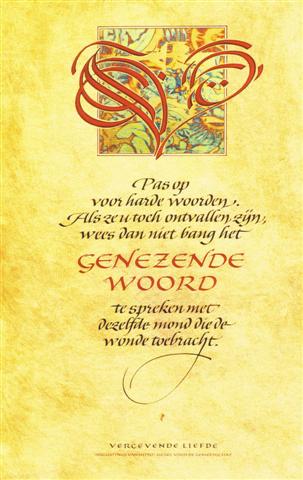 Pas op
voor harde woorden.
Als ze u toch ontvallen zijn,
wees dan niet bang het
GENEZENDE
WOORD
te spreken met
dezelfde mond die de
wonde toebracht.
VERGEVENDE LIEFDE